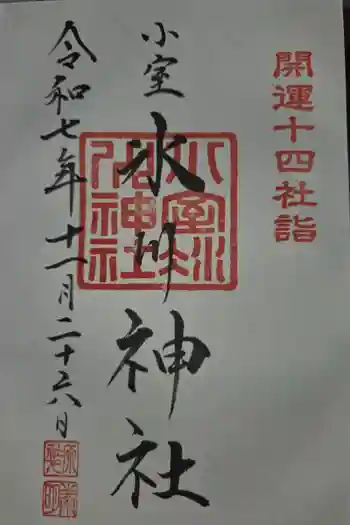 開運十四社詣
小室
氷川神社
小室氷川神社
令和七年十一月二十六日